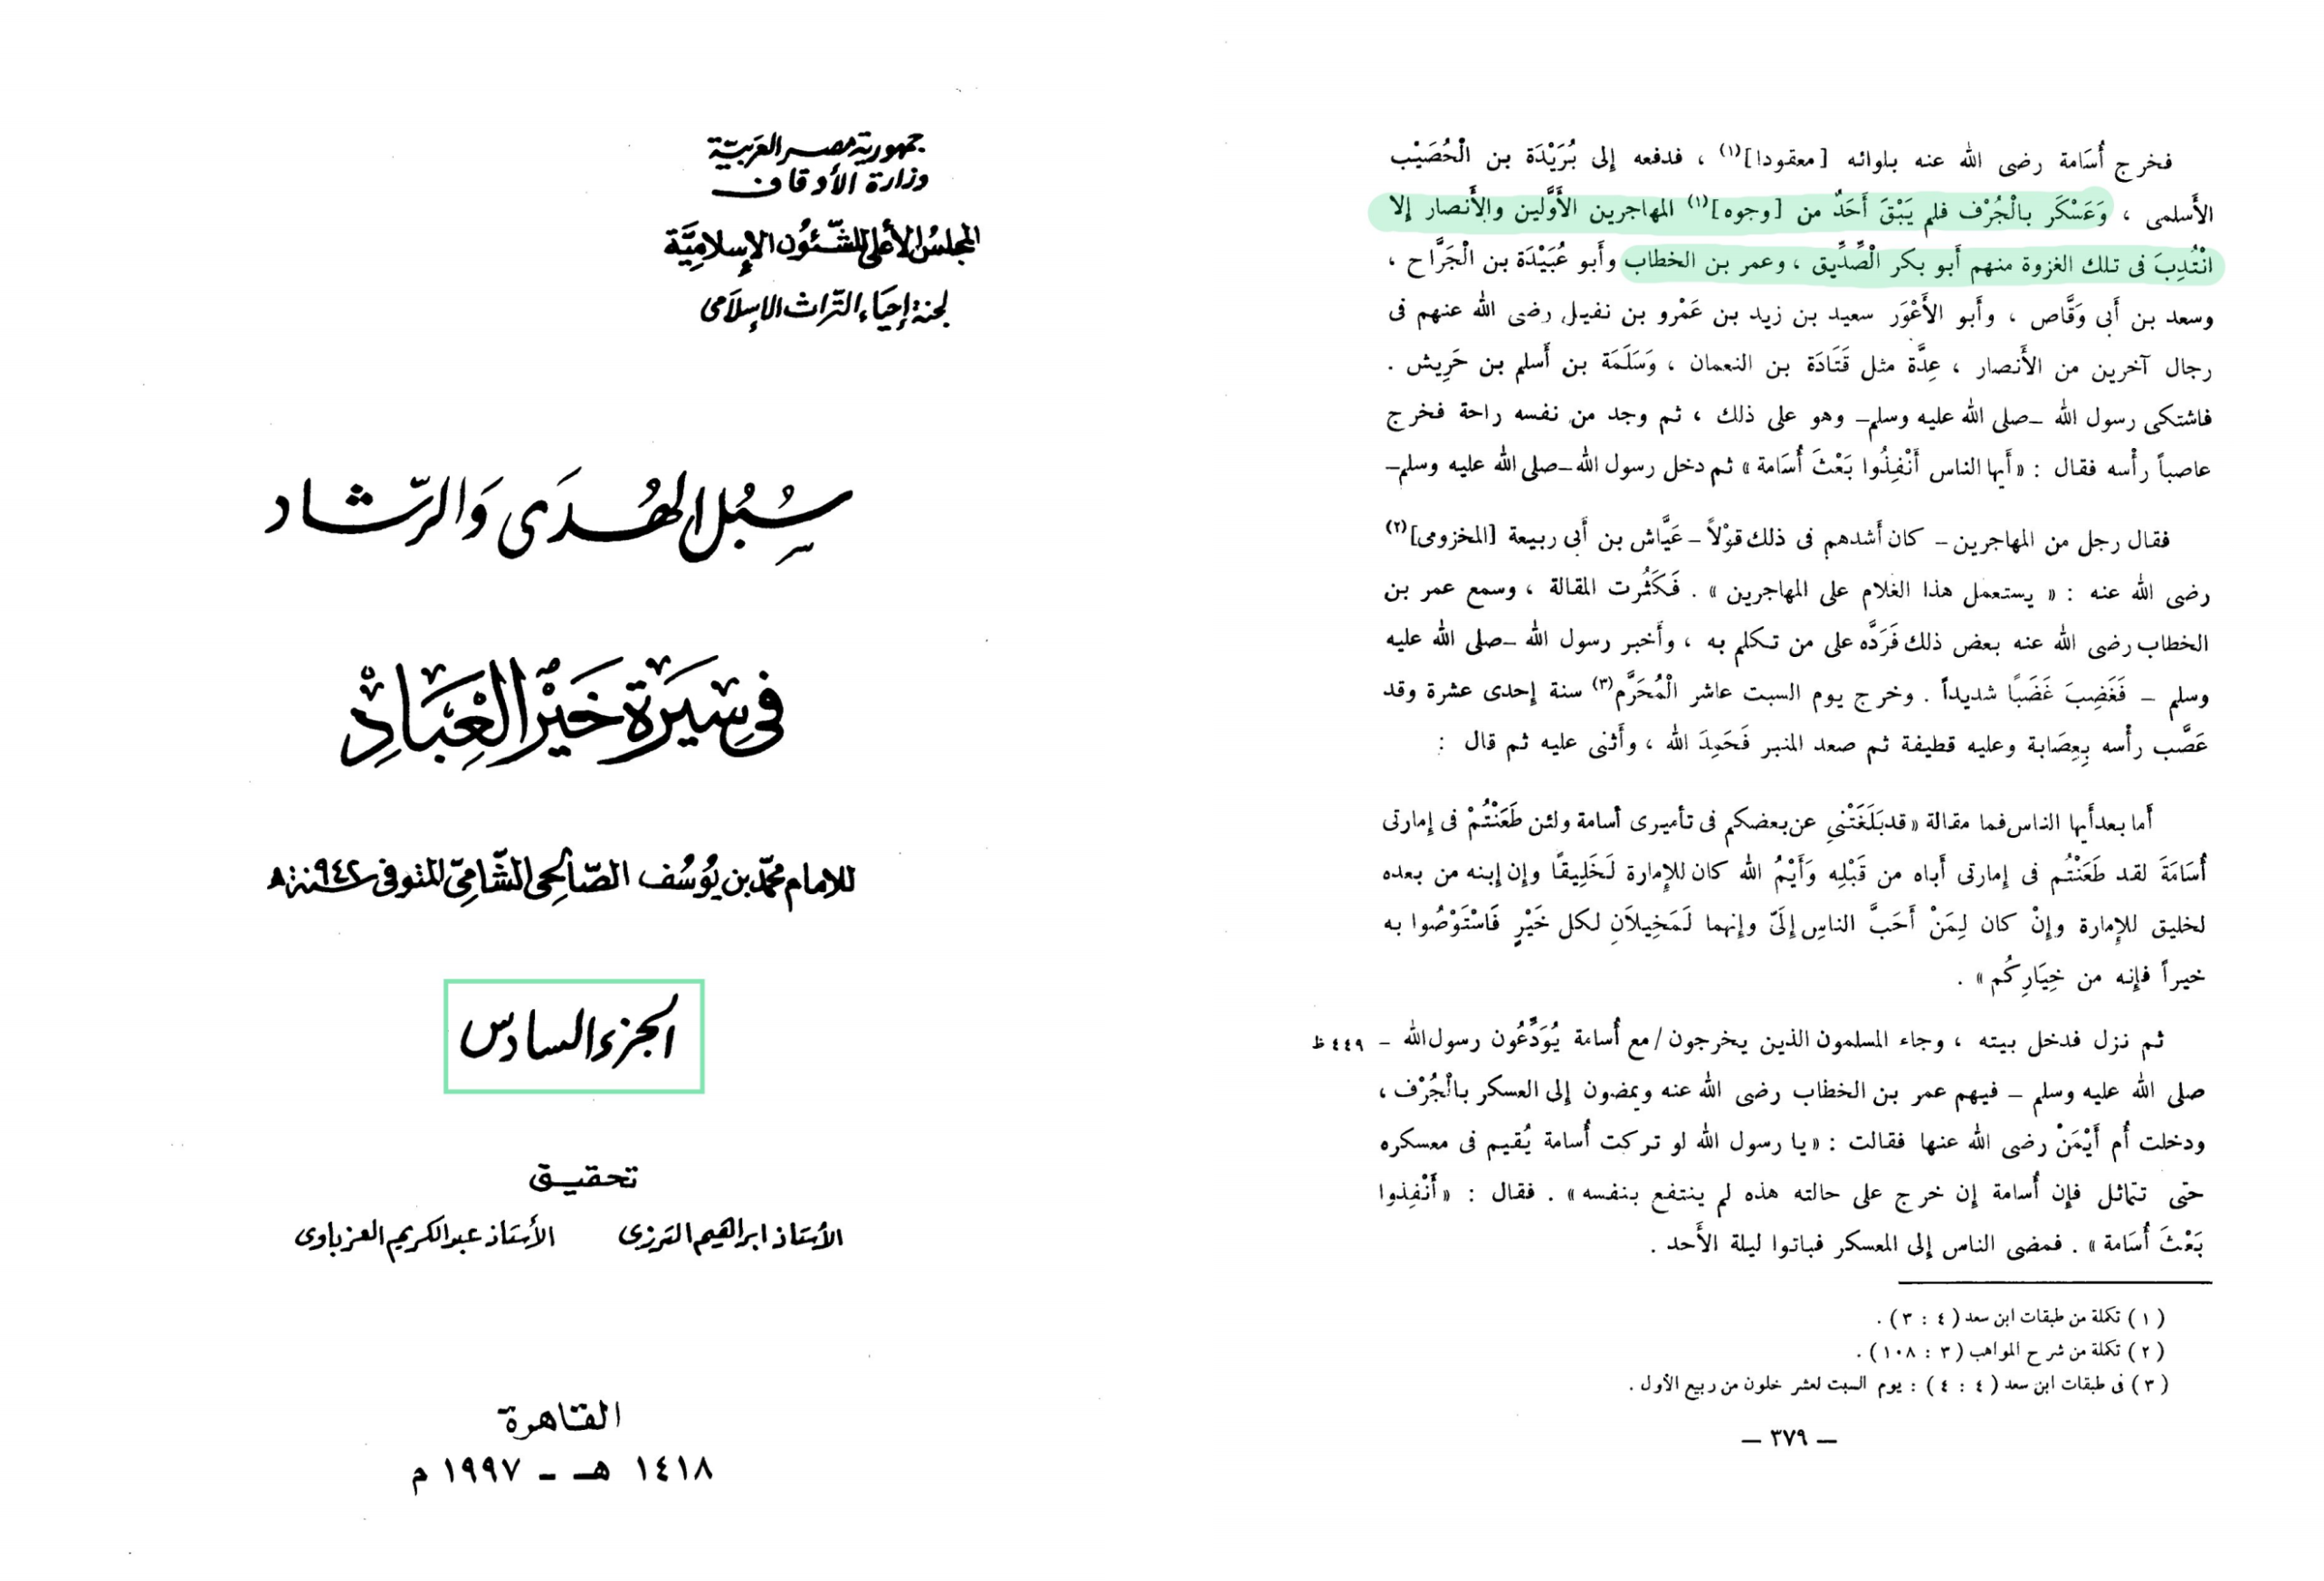 جمهورية مصر العربية
وزارة الأوقاف
المجلس الأعلى للشئون الإسلامية
لجنة إحياء التراث الإسلامى
سُبُل الهُدَى وَالرّشاد
فى سِيرَة خَيْر الْعِبَادِ
للامام محمد بن يُوسُف الصّالحى الشّامِىّ المتوفى سنة ٩٤٢ هـ
الجزء السادس
تحقيق
الأستاذ ابراهيم الترزى الأستاذ عبد الكريم العزباوى
القاهرة
١٤١٨ هـ - ١٩٩٧ م
فخرج أُسَامة رضى الله عنه بلوائه [معقودا](١) ، فدفعه إلى بُرَيْدَة بن الْحُصَيْب
الأَسلمى ، وَعَسْكَر بالْجُرْف فلم يَبْقَ أَحَدٌ من [وجوه](١) المهاجرين الأَوَّلين والأَنصار إلا
انْتُدِبَ فى تلك الغزوة منهم أَبو بكر الْصِّدِّيق ، وعمر بن الخطاب وأَبو عُبَيْدَة بن الْجَرَّاح ،
وسعد بن أَبى وَقَّاص ، وأَبو الأَعْوَر سعيد بن زيد بن عَمْرو بن نفيل رضى الله عنهم فى
رجال آخرين من الأَنصار ، عِدَّة مثل قَتَادَة بن النعمان ، وَسَلَمَة بن أَسلم بن حَرِيش .
فاشتكى رسول الله ــصلى الله عليه وسلمــ وهو على ذلك ، ثم وجد من نفسه راحة فخرج
عاصباً رأْسه فقال : «أَيها الناس أَنْفِذُوا بَعْثَ أُسَامة » ثم دخل رسول اللهــصلى الله عليه وسلمــ
فقال رجل من المهاجرين ــ كان أَشدهم فى ذلك قوْلاً ــ عَيَّاش بن أَبى ربيعة [المخزومى](٢)
رضى الله عنه : « يستعمل هذا الغلام على المهاجرين » . فَكَثُرت المقالة ، وسمع عمر بن
الخطاب رضى الله عنه بعض ذلك فَرَدَّه على من تكلم به ، وأَخبر رسول الله ــصلى الله عليه
وسلم ــ فَغَضِبَ غَضَبًا شديداً . وخرج يوم السبت عاشر الْمُحَرَّم(٣) سنة إحدى عشرة وقد
عَصَّب رأْسه بِعِصَابة وعليه قطيفة ثم صعد المنبر فَحَمِدَ الله ، وأَثنى عليه ثم قال :
أَما بعد أَيها الناس فما مقالة « قد بَلَغَتْنىِ عن بعضكم فى تأميرى أسامة ولئن طَعَنْتُمْ فى إمارتى
أُسَامَةَ لقد طَعَنْتُم فى إمارتى أَباه من قَبْلِه وَأَيْمُ الله كان للإِمارة لَخَلِيقًا وإن إبنه من بعده
لخليق للإِمارة وإِنْ كان لِمَنْ أَحَبَّ الناسِ إِلَىّ وإنهما لَمَخِيلاَنِ لكل خَيْرٍ فَاسْتَوْصُوا به
خيراً فإنه من خِيَارِكُم » .
ثم نزل فدخل بيته ، وجاء المسلمون الذين يخرجون / مع أُسامة يُوَدِّعُون رسول الله ــ ٤٤٩ ظ
صلى الله عليه وسلم ــ فيهم عمر بن الخطاب رضى الله عنه ويمضون إلى العسكر بالْجُرْف ،
ودخلت أُم أَيْمَنْ رضى الله عنها فقالت : « يا رسول الله لو تركت أُسامة يُقيم فى معسكره
حتى تتماثل فإن أُسامة إن خرج على حالته هذه لم ينتفع بنفسه » . فقال : « أَنْفِذوا
بَعْثَ أُسَامة » . فمضى الناس إلى المعسكر فباتوا ليلة الأَحد .
( ١ ) تكملة من طبقات ابن سعد ( ٤ : ٣ ) .
( ٢ ) تكملة من شرح المواهب ( ٣ : ١٠٨ ) .
( ٣ ) فى طبقات ابن سعد ( ٤ : ٤ ) : يوم السبت لعشر خلون من ربيع الأول .
— ٣٧٩ —